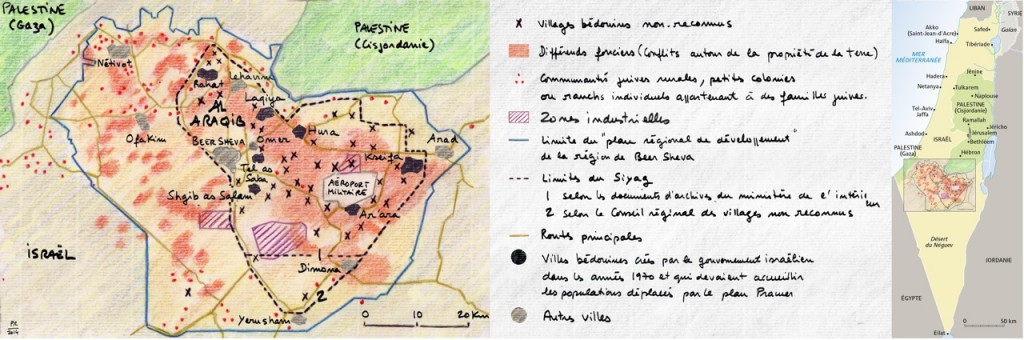 PALESTINE
(Gaza)
PALESTINE
(Cisjordanie)
Nétivot
Rahat
Lehavim
Laqiya
AL
ARAQIB
Ofakim
BEER SHEVA
Omer
Hura
Arad
Kseifa
Tel as
Saba
AÉROPORT
MILITAIRE
Shgib as Salam
Ar'ara
ISRAËL
1
Dimona
2
Yeruham
0 10 20 Km
PR
2014
x Villages bédouins non-reconnus
Différends fonciers (Conflits autour de la propriété de la terre)
Communauté juives rurales, petites colonies
ou ranchs individuels appartenant à des familles juives.
Zones industrielles
Limite du "plan régional de développement"
de la région de Beer Sheva
Limites du Siyag
1 selon les documents d'archives du ministère de l'intérieur
2 selon le Conseil régional des villages non reconnus
Routes principales
Villes bédouines crées par le gouvernement israélien
dans les années 1970 et qui devaient accueillir
les populations déplacées par le plan Prawer
Autres villes
LIBAN
SYRIE
Akko
(Saint-Jean-d'Acre)
Safed
Golan
Haifa
Tibériade
MER
MÉDITERRANÉE
Jénine
Hadera
Netanya
Tulkarem
Naplouse
Tel-Aviv
Jaffa
PALESTINE
(Cisjordanie)
Ramallah
Jéricho
Ashdod
ISRAËL
Jérusalem
Bethléem
PALESTINE
(Gaza)
Hébron
Désert
du Néguev
JORDANIE
ÉGYPTE
Eilat
0 50 km